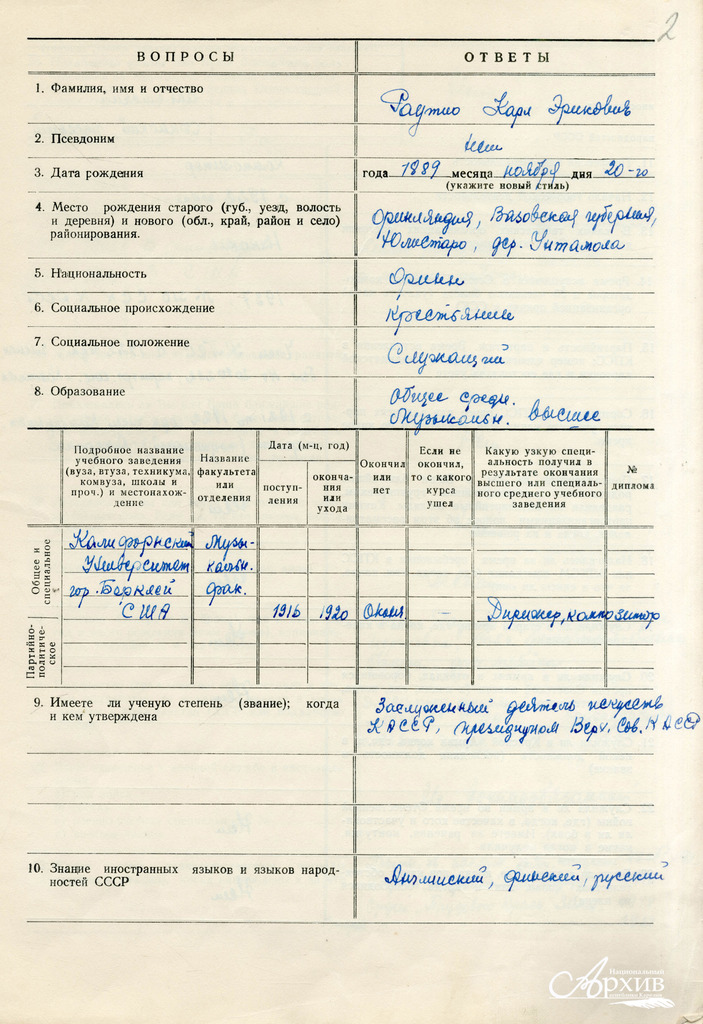 2
ВОПРОСЫ
ОТВЕТЫ
1. Фамилия, имя и отчество
Раутио Карл Эрикович
2. Псевдоним
нет
3. Дата рождения
года 1889 месяца ноября дня 20-го
(укажите новый стиль)
4. Место рождения старого (губ., уезд, волость
и деревня) и нового (обл., край, район и село)
районирования.
Финляндия, Вазовская губерния,
Юлистаро, дер. Унтамола
5. Национальность
Финн
6. Социальное происхождение
Крестьянин
7. Социальное положение
Служащий
8. Образование
Общее средн.
Музыкальн. высшее
Подробное название
учебного заведения
(вуза, втуза, техникума,
комвуза, школы и
проч.) и местонахож-
дение
Название
факультета
или
отделения
Дата (м-ц, год)
поступ-
ления
оконча-
ния
или
ухода
Окончил
или
нет
Если не
окончил,
то с какого
курса
ушел
Какую узкую специ-
альность получил в
результате окончания
высшего или специаль-
ного среднего учебного
заведения
№
диплома
Общее и
специальное
Калифорнский Музы-
Университет кальн.
гор. Беркли фак.
США 1916 1920 Окончил — Дирижер, композитор
Партийно-
политиче-
ское
9. Имеете ли ученую степень (звание); когда
и кем утверждена
Заслуженный деятель искусств
КАССР, президиумом Верх. Сов. КАССР
10. Знание иностранных языков и языков народ-
ностей СССР
Английский, финский, русский
Национальный
Архив